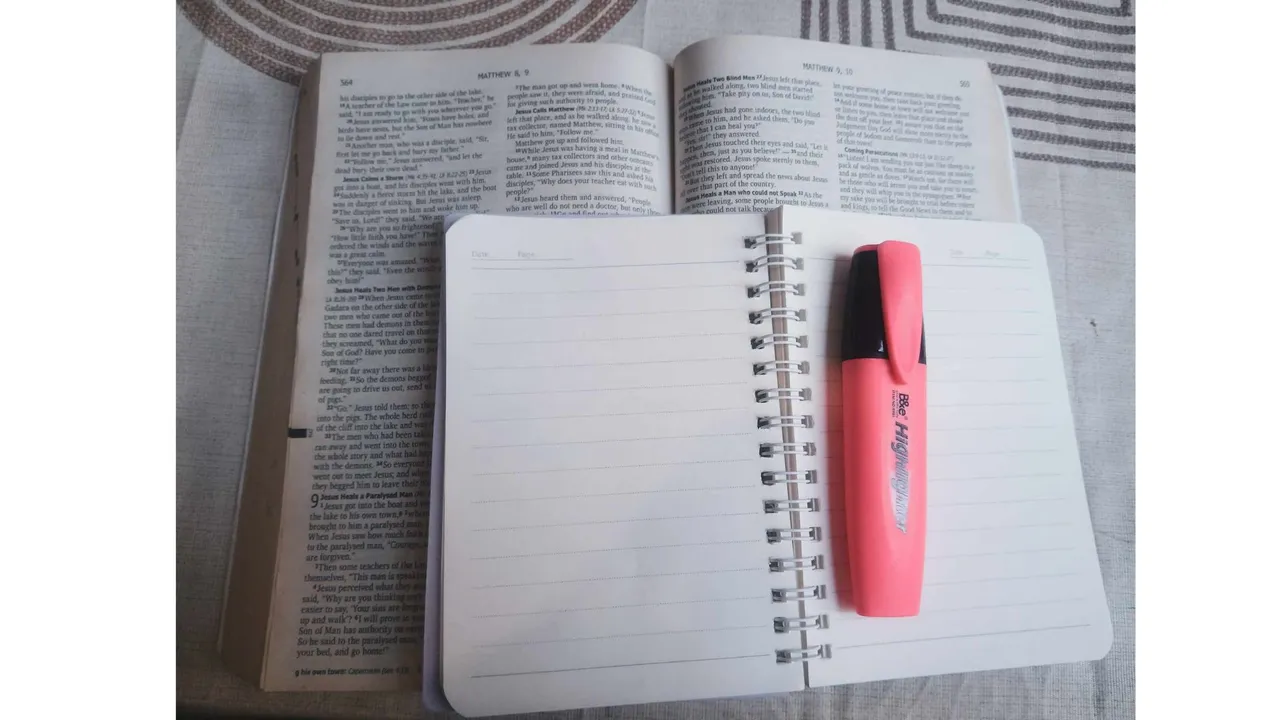 564
MATTHEW 8, 9
his disciples to go to the other side of the lake.
A teacher of the Law came to him. "Teacher," he
said, "I am ready to go with you wherever you go."
20Jesus answered him, "Foxes have holes, and
birds have nests, but the Son of Man has nowhere
to lie down and rest."
21Another man, who was a disciple, said, "Sir,
first let me go back and bury my father."
22"Follow me," Jesus answered, "and let the
dead bury their own dead."
Jesus Calms a Storm
got into a boat, and his disciples went with him.
24Suddenly a fierce storm hit the lake, and the boat
was in danger of sinking. But Jesus was asleep.
25The disciples went to him and woke him up.
"Save us, Lord!" they said. "We are
26"Why are you so frightened
"How little faith you have!" Then
ordered the winds and the waves
was a great calm.
27Everyone was amazed.
this?" they said. "Even the wind
obey him!"
Jesus Heals Two Men with Demons
28When Jesus came to
Gadara on the other side of the lake
two men who came out of the
These men had demons in them
that no one dared travel on that
they screamed, "What do you
Son of God? Have you come to
right time?"
30Not far away there was a
feeding. 31So the demons begged
are going to drive us out, send
of pigs."
32"Go," Jesus told them; so they
into the pigs. The whole herd
of the cliff into the lake and was
33The men who had been taking
ran away and went into the town
the whole story and what had
with the demons. 34So everyone
went out to meet Jesus; and when
they begged him to leave their
9 Jesus Heals a Paralysed Man
Jesus got into the boat and
the lake to his own town,
brought to him a paralysed man
When Jesus saw how much faith
to the paralysed man, "Courage,
are forgiven."
3Then some teachers of the Law
themselves, "This man is speaking
4Jesus perceived what they
said, "Why are you thinking
easier to say, 'Your sins are
up and walk'? 6I will prove to
Son of Man has authority on
So he said to the paralysed man,
your bed, and go home!"
his own town: Capernaum
7The man got up and went home. 8When the
people saw it, they were afraid, and praised God
for giving such authority to people.
Jesus Calls Matthew
left that place, and as he walked along, he saw a
tax collector, named Matthew, sitting in his office.
He said to him, "Follow me."
Matthew got up and followed him.
10While Jesus was having a meal in Matthew's
house, many tax collectors and other outcasts
came and joined Jesus and his disciples at the
table. 11Some Pharisees saw this and asked his
disciples, "Why does your teacher eat with such
people?"
12Jesus heard them and answered, "People
who are well do not need a doctor, but only those
MATTHEW 9, 10
565
Jesus Heals Two Blind Men 27Jesus left that place,
and as he walked along, two blind men started
following him. "Take pity on us, Son of David!"
shouted.
When Jesus had gone indoors, the two blind
came to him, and he asked them, "Do you
believe that I can heal you?"
sir!" they answered.
Then Jesus touched their eyes and said, "Let it
happen, then, just as you believe!" — 30and their
was restored. Jesus spoke sternly to them,
"Don't tell this to anyone!"
But they left and spread the news about Jesus
all over that part of the country.
Jesus Heals a Man who could not Speak 32As the
were leaving, some people brought to Jesus a
could not talk because
let your greeting of peace remain; but if they do
not welcome you, then take back your greeting.
14And if some home or town will not welcome you
or listen to you, then leave that place and shake
the dust off your feet. 15I assure you that on the
Judgement Day God will show more mercy to the
people of Sodom and Gomorrah than to the people
of that town!
Coming Persecutions
"Listen! I am sending you out just like sheep to a
pack of wolves. You must be as cautious as snakes
and as gentle as doves. 17Watch out, for there will
be those who will arrest you and take you to court,
and they will whip you in the synagogues. 18For
my sake you will be brought to trial before rulers
and kings, to tell the Good News to them and to
Date
Page
Date
Page
B&e
Highlighter